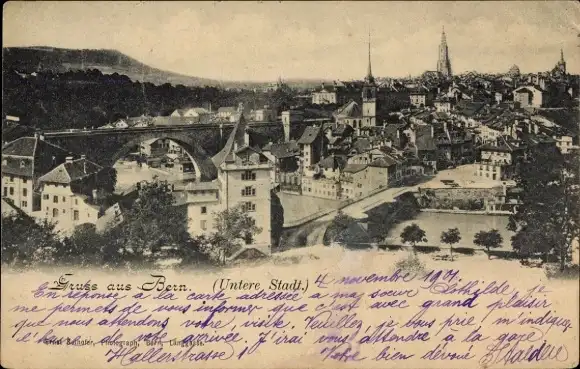 Gruss aus Bern. (Untere Stadt.)
4 novembre 1901
En réponse à la carte adressée a ma sœur Clothilde, je
me permets de vous informer que c'est avec grand plaisir
que nous attendons votre visite. Veuillez, je vous prie, m'indiquer
l'heure arrivée j'irai vous attendre a la gare.
Ernst Selhofer, Photograph, Bern, Länggasse.
Hallerstrasse Votre bien dévoué